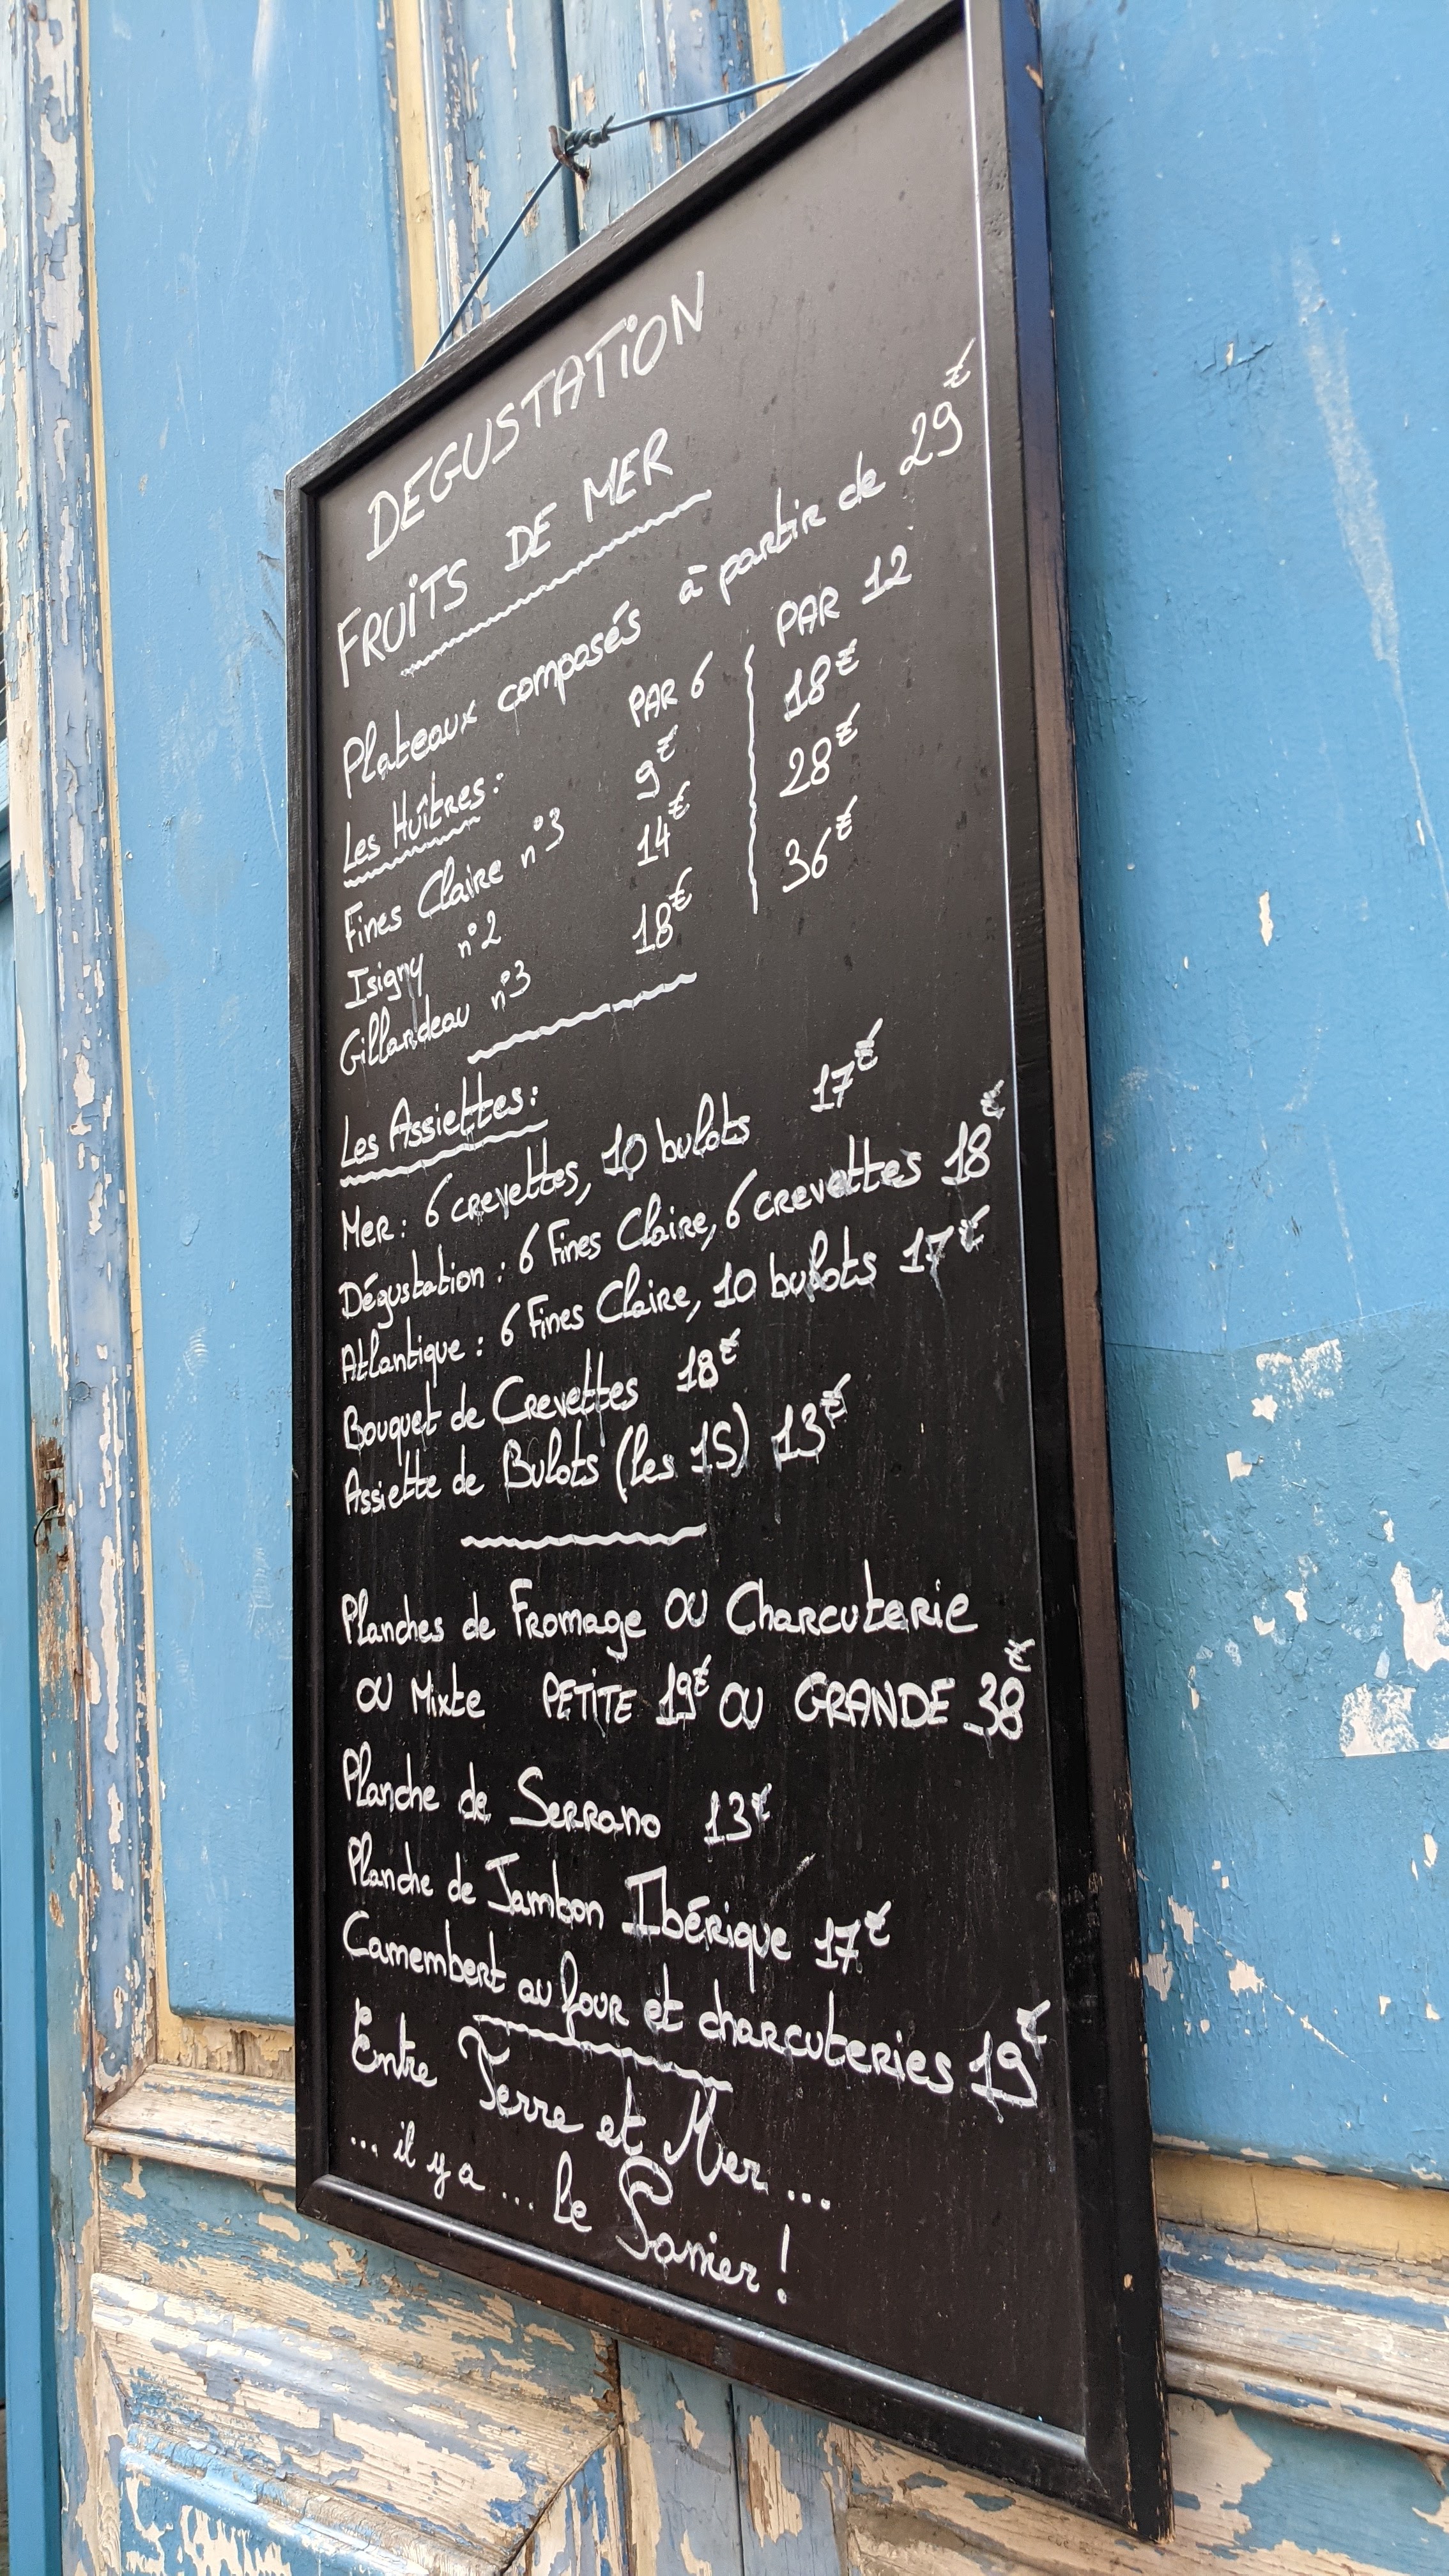 DEGUSTATION
FRUITS DE MER
Plateaux composés à partir de 29€
Les Huîtres : PAR 6 PAR 12
Fines Claire n°3 9€ 18€
Isigny n°2 14€ 28€
Gillardeau n°3 18€ 36€
Les Assiettes :
Mer : 6 crevettes, 10 bulots 17€
Dégustation : 6 Fines Claire, 6 crevettes 18€
Atlantique : 6 Fines Claire, 10 bulots 17€
Bouquet de Crevettes 18€
Assiette de Bulots (les 15) 13€
Planches de Fromage OU Charcuterie
OU Mixte PETITE 19€ OU GRANDE 38€
Planche de Serrano 13€
Planche de Jambon Ibérique 17€
Camembert au four et charcuteries 19€
Entre Terre et Mer...
... il y a ... le Panier !